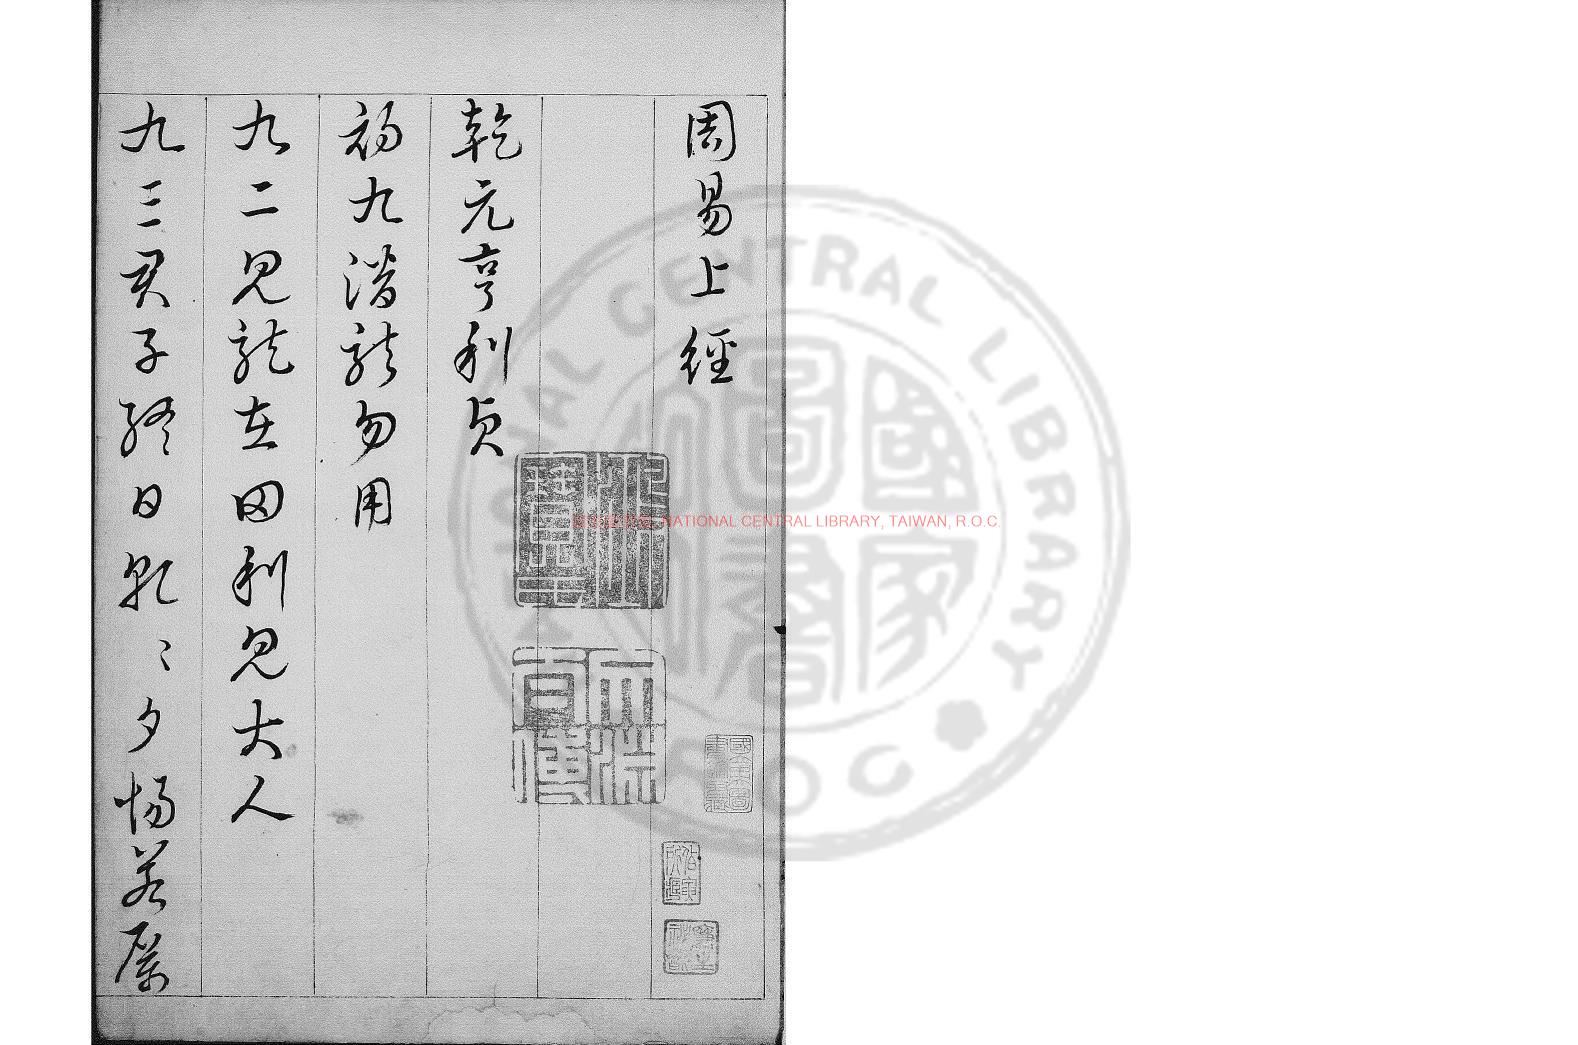 周易上經
乾元亨利貞
初九潛龍勿用
九二見龍在田利見大人
九三君子終日乾〻夕惕若厲
NATIONAL CENTRAL LIBRARY, TAIWAN, R.O.C.
NATIONAL CENTRAL LIBRARY
ROC
國家圖書館